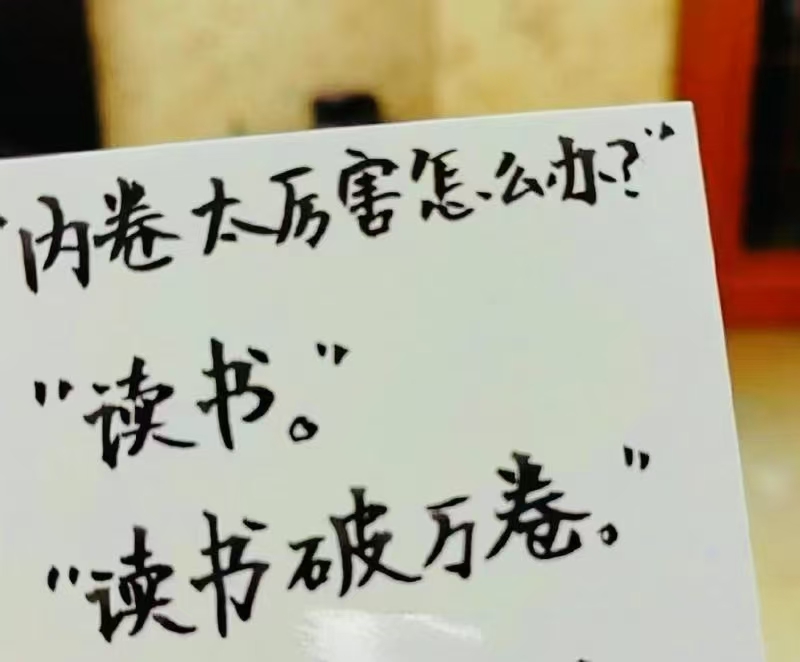 "内卷太厉害怎么办?"
"读书。"
"读书破万卷。"